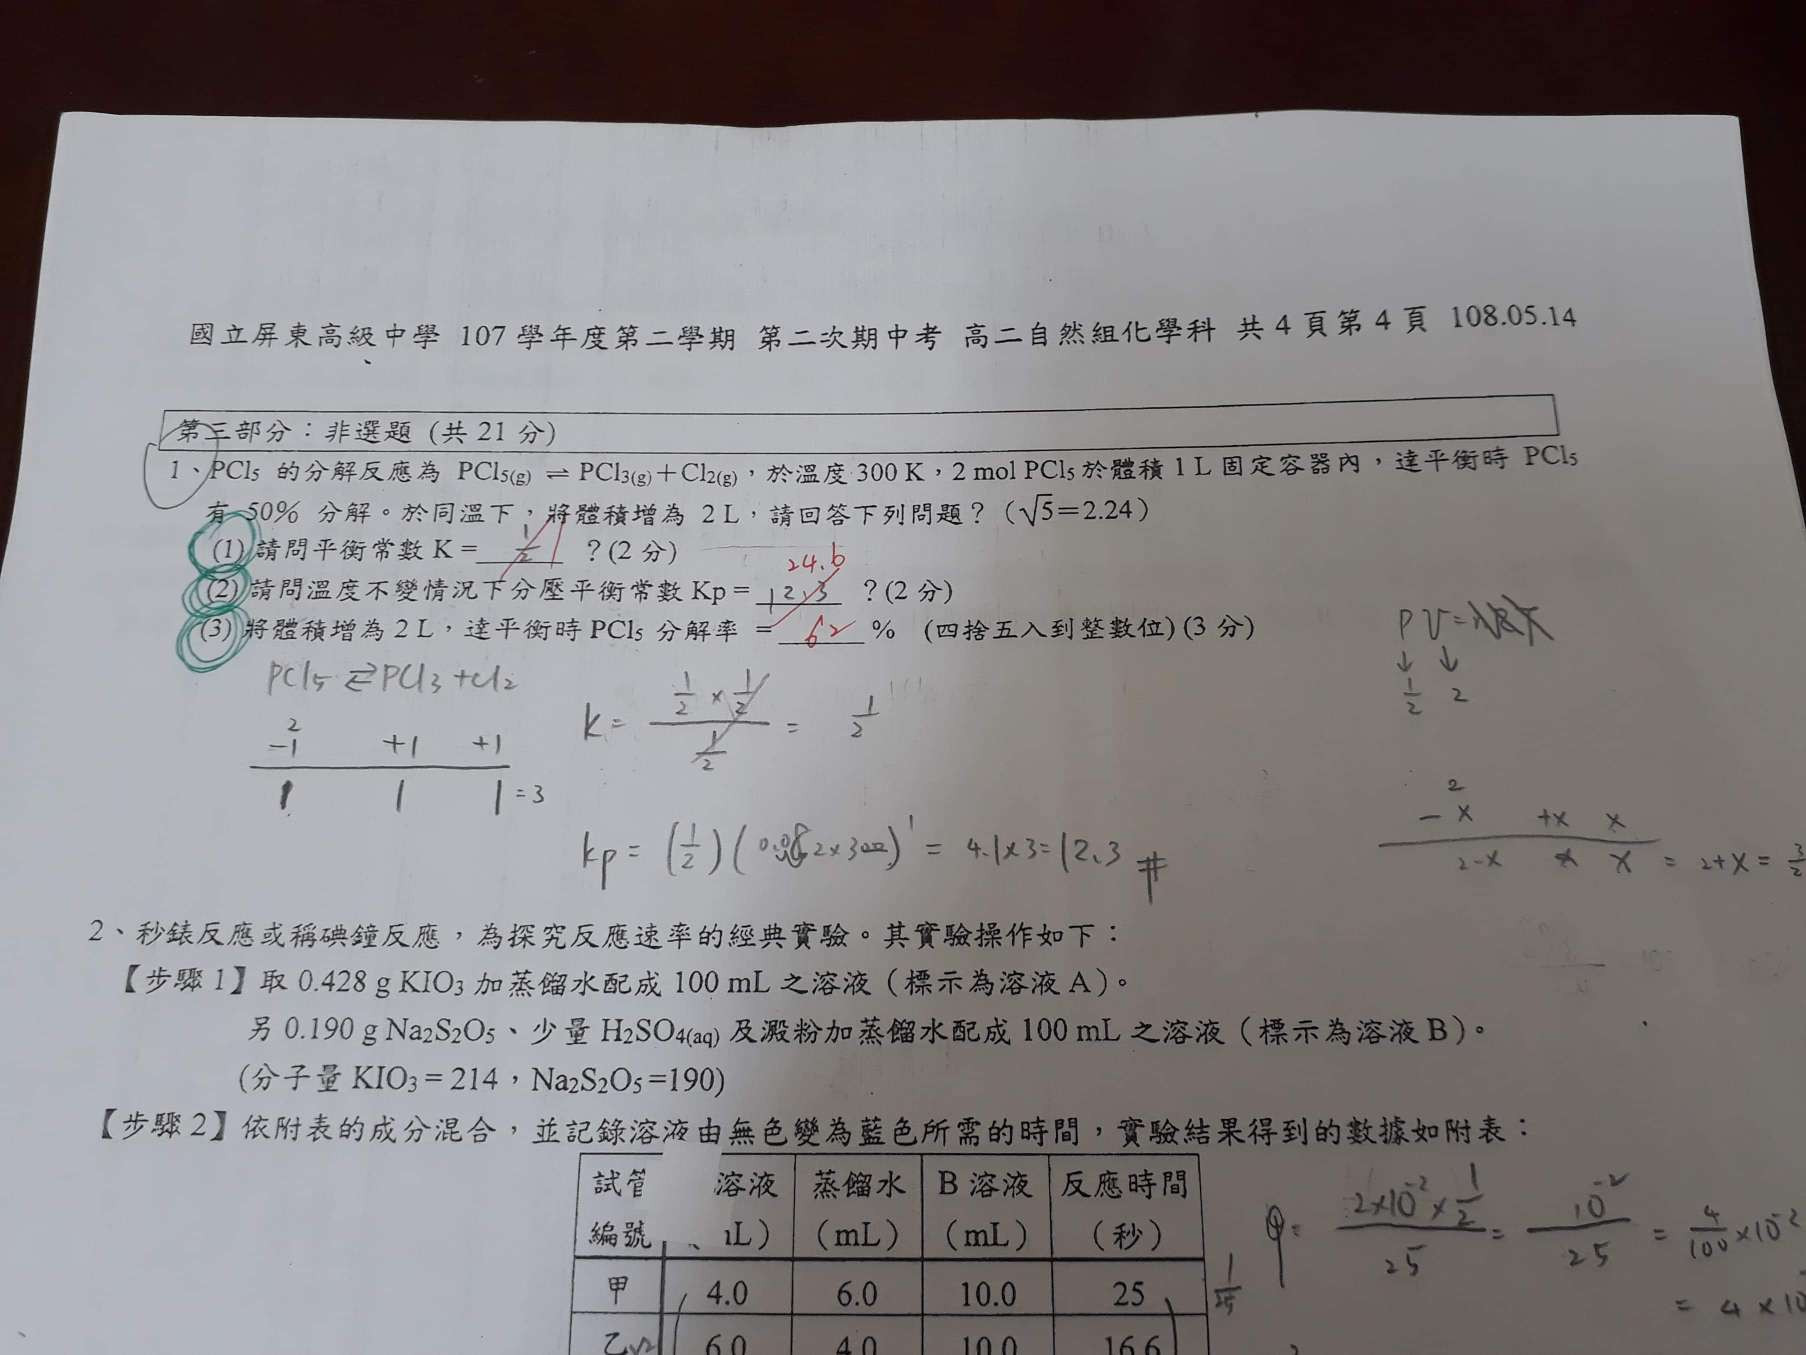 國立屏東高級中學 107 學年度第二學期 第二次期中考 高二自然組化學科 共 4 頁第 4 頁 108.05.14
第三部分：非選題 (共 21 分)
1、PCl5 的分解反應為 PCl5(g) ⇌ PCl3(g)＋Cl2(g)，於溫度 300 K，2 mol PCl5 於體積 1 L 固定容器內，達平衡時 PCl5
有 50% 分解。於同溫下，將體積增為 2 L，請回答下列問題？（√5＝2.24）
(1) 請問平衡常數 K = 1/2 ？(2 分)
24.6
(2) 請問溫度不變情況下分壓平衡常數 Kp = 12.3 ？(2 分)
(3) 將體積增為 2 L，達平衡時 PCl5 分解率 = 62 % (四捨五入到整數位) (3 分)
PV=nRT
↓ ↓
1/2 2
PCl5 ⇄ PCl3 + Cl2
2
-1 +1 +1
1 1 1 = 3
K = (1/2 × 1/2) / (1/2) = 1/2
2
-x +x x
2-x x x = 2+x = 3/2
kp = (1/2)(0.082×300)^1 = 4.1×3=12.3 #
2、秒錶反應或稱碘鐘反應，為探究反應速率的經典實驗。其實驗操作如下：
【步驟 1】取 0.428 g KIO3 加蒸餾水配成 100 mL 之溶液（標示為溶液 A）。
另 0.190 g Na2S2O5、少量 H2SO4(aq) 及澱粉加蒸餾水配成 100 mL 之溶液（標示為溶液 B）。
(分子量 KIO3 = 214，Na2S2O5 =190)
【步驟 2】依附表的成分混合，並記錄溶液由無色變為藍色所需的時間，實驗結果得到的數據如附表：
試管 溶液 蒸餾水 B 溶液 反應時間
編號 L） （mL） （mL） （秒）
甲 4.0 6.0 10.0 25
乙 6.0 4.0 10.0 16.6
1/25
= (2×10^-2 × 1/2) / 25 = 10^-2 / 25 = 4/100 ×10^-2
= 4 × 10